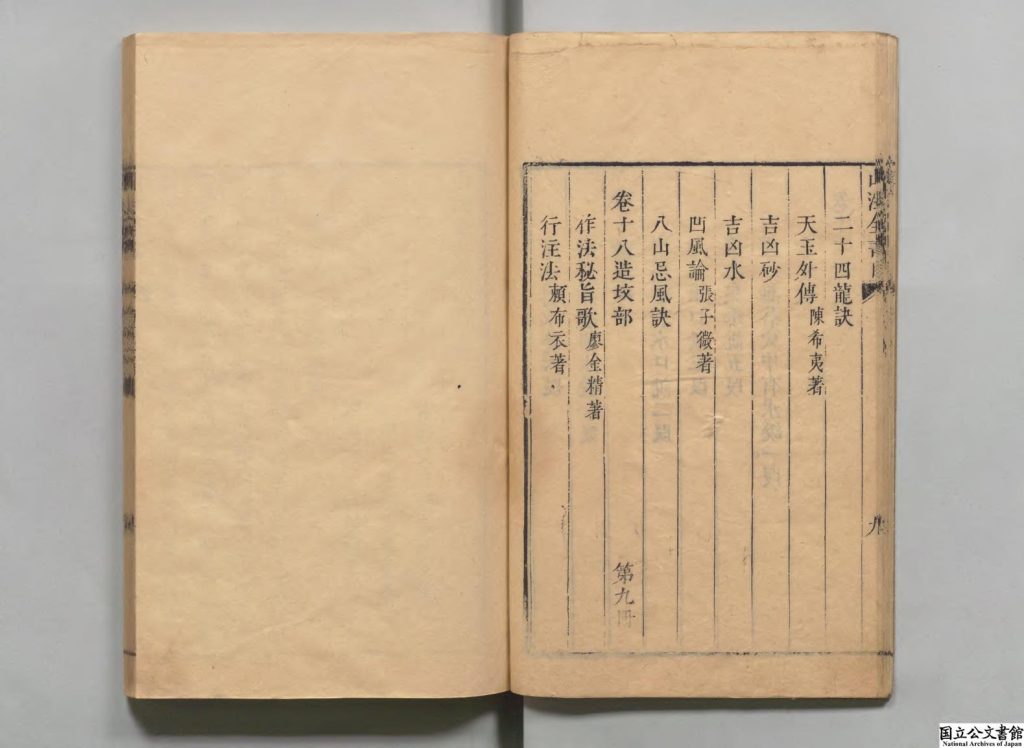 二十四龍訣
天玉外傳 陳希夷著
吉凶砂
吉凶水
凹風論 張子微著
八山忌風訣
卷十八造坟部 第九冊
作法秘旨歌 廖金精著
行注法 賴布衣著
九
国立公文書館
National Archives of Japan